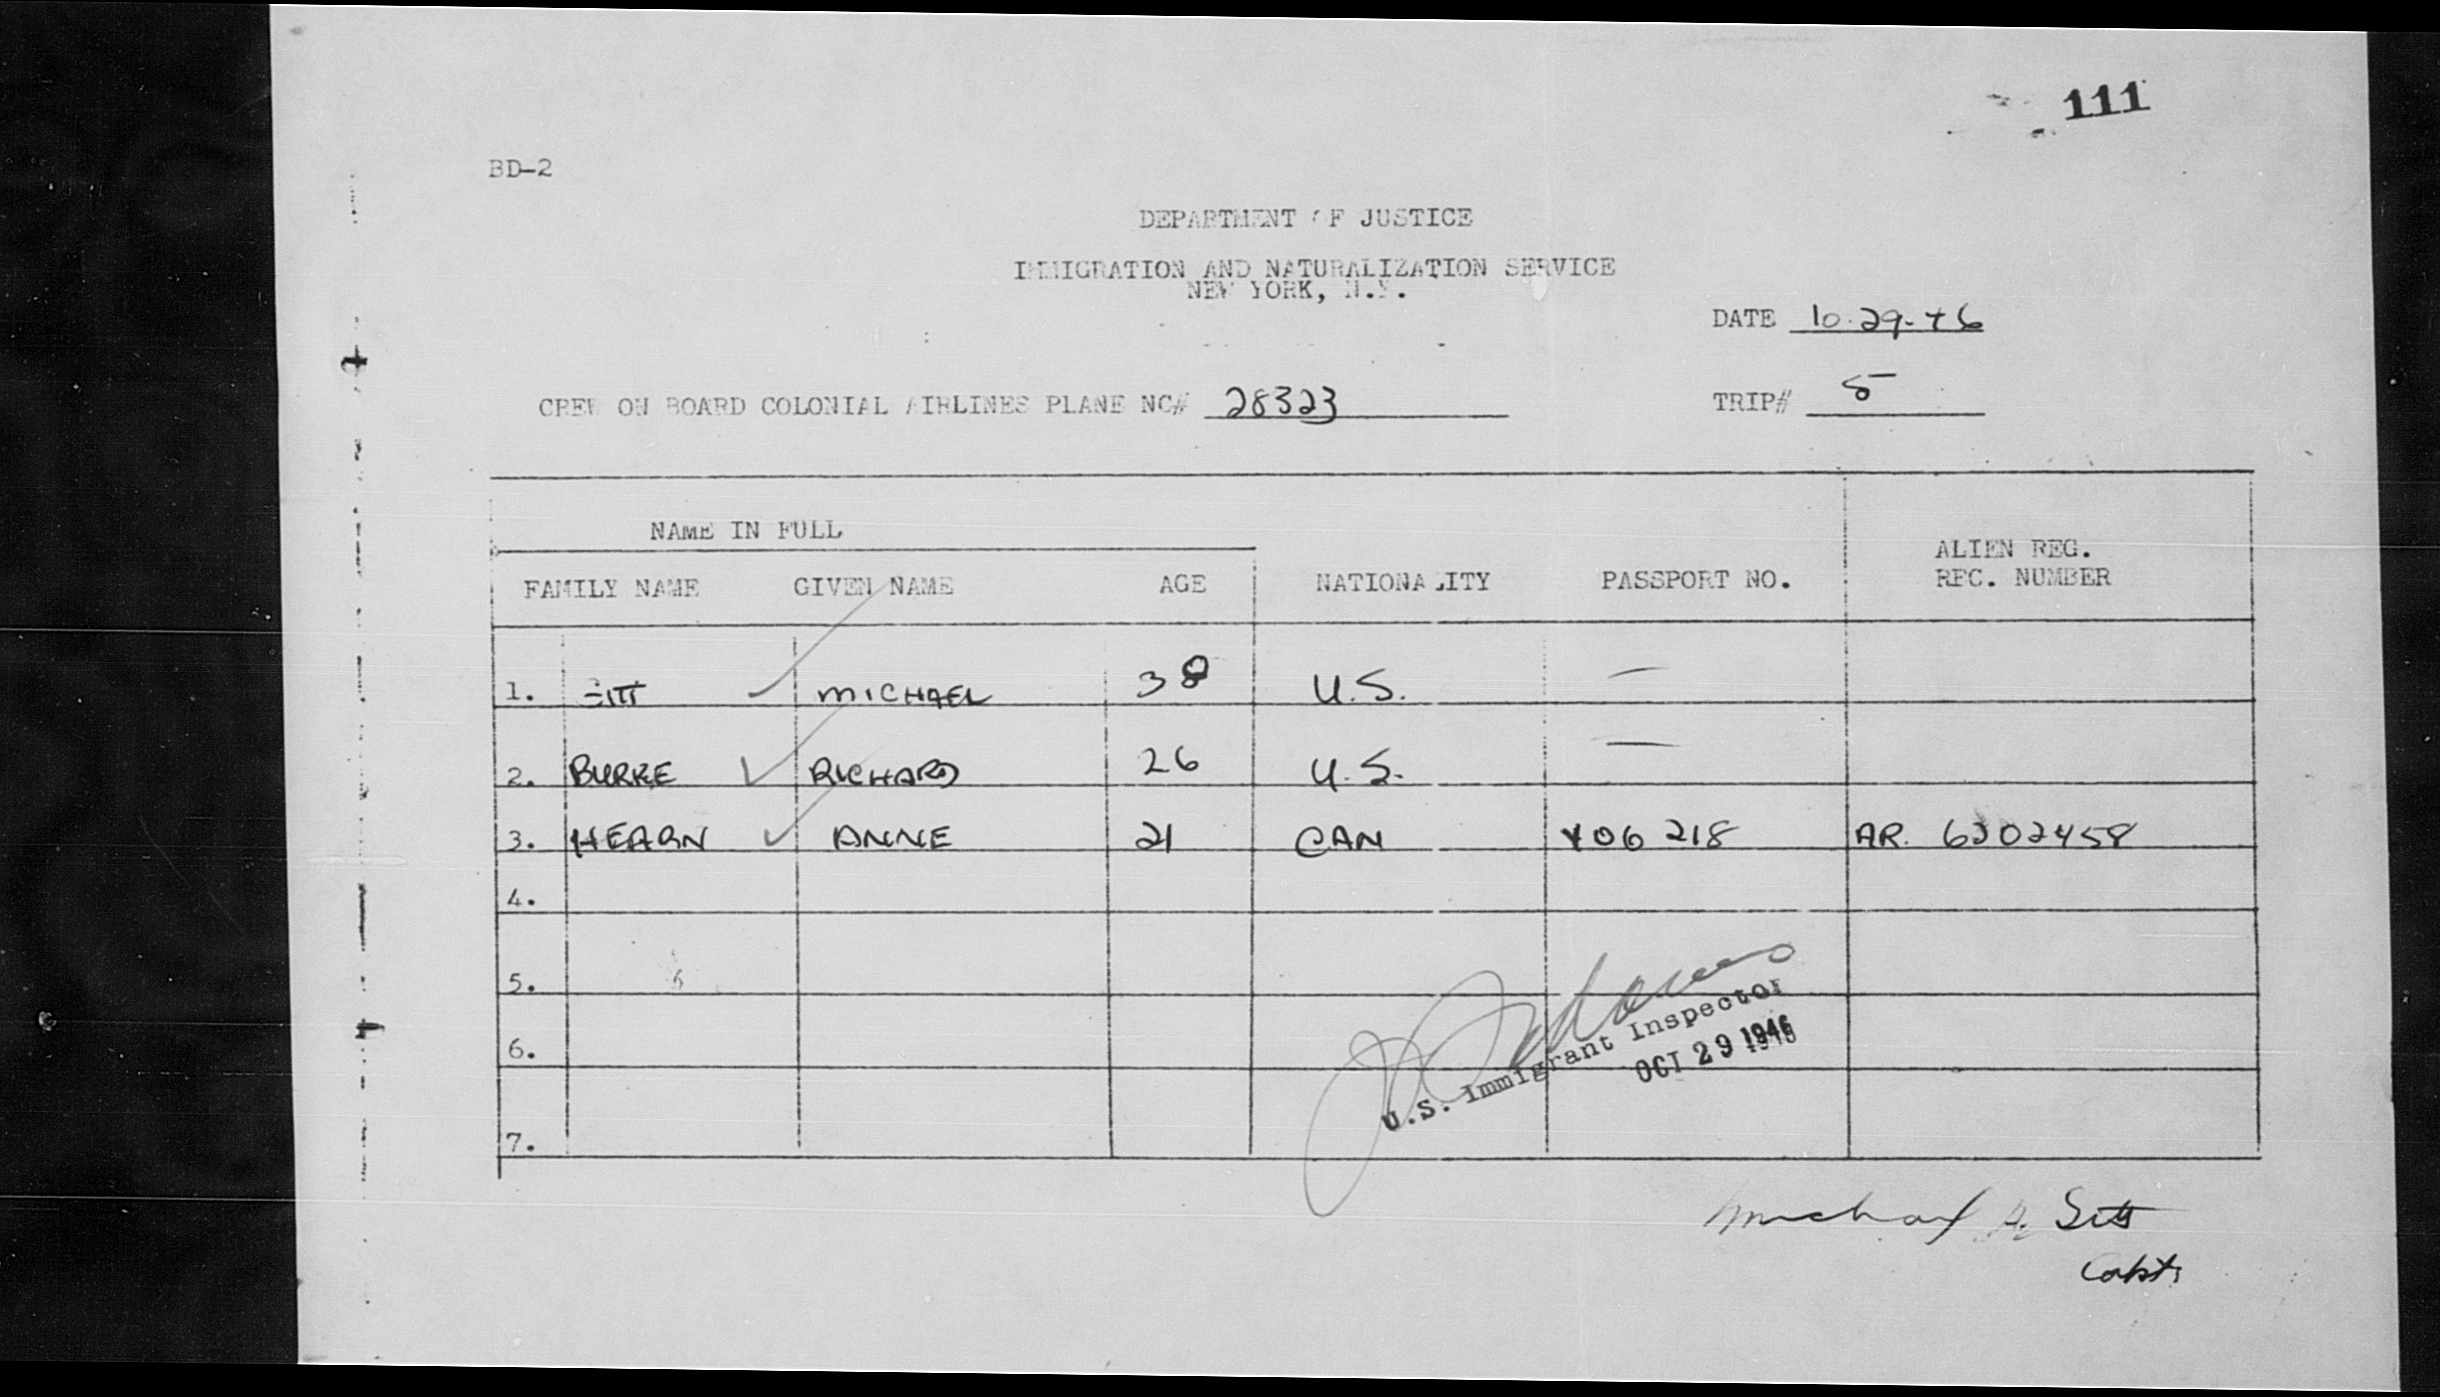 111
BD-2
DEPARTMENT OF JUSTICE
IMMIGRATION AND NATURALIZATION SERVICE
NEW YORK, N.Y.
DATE 10-29-46
CREW ON BOARD COLONIAL AIRLINES PLANE NC# 28323 TRIP# 5
NAME IN FULL
FAMILY NAME GIVEN NAME AGE NATIONALITY PASSPORT NO. ALIEN REG. REC. NUMBER
1. MICHAEL 38 U.S. —
2. BURKE RICHARD 26 U.S. —
3. HEARN ANNE 21 CAN 406 218 AR. 6202458
4.
5.
6.
7.
U.S. Immigrant Inspector
OCT 29 1946
Michael
Capt.